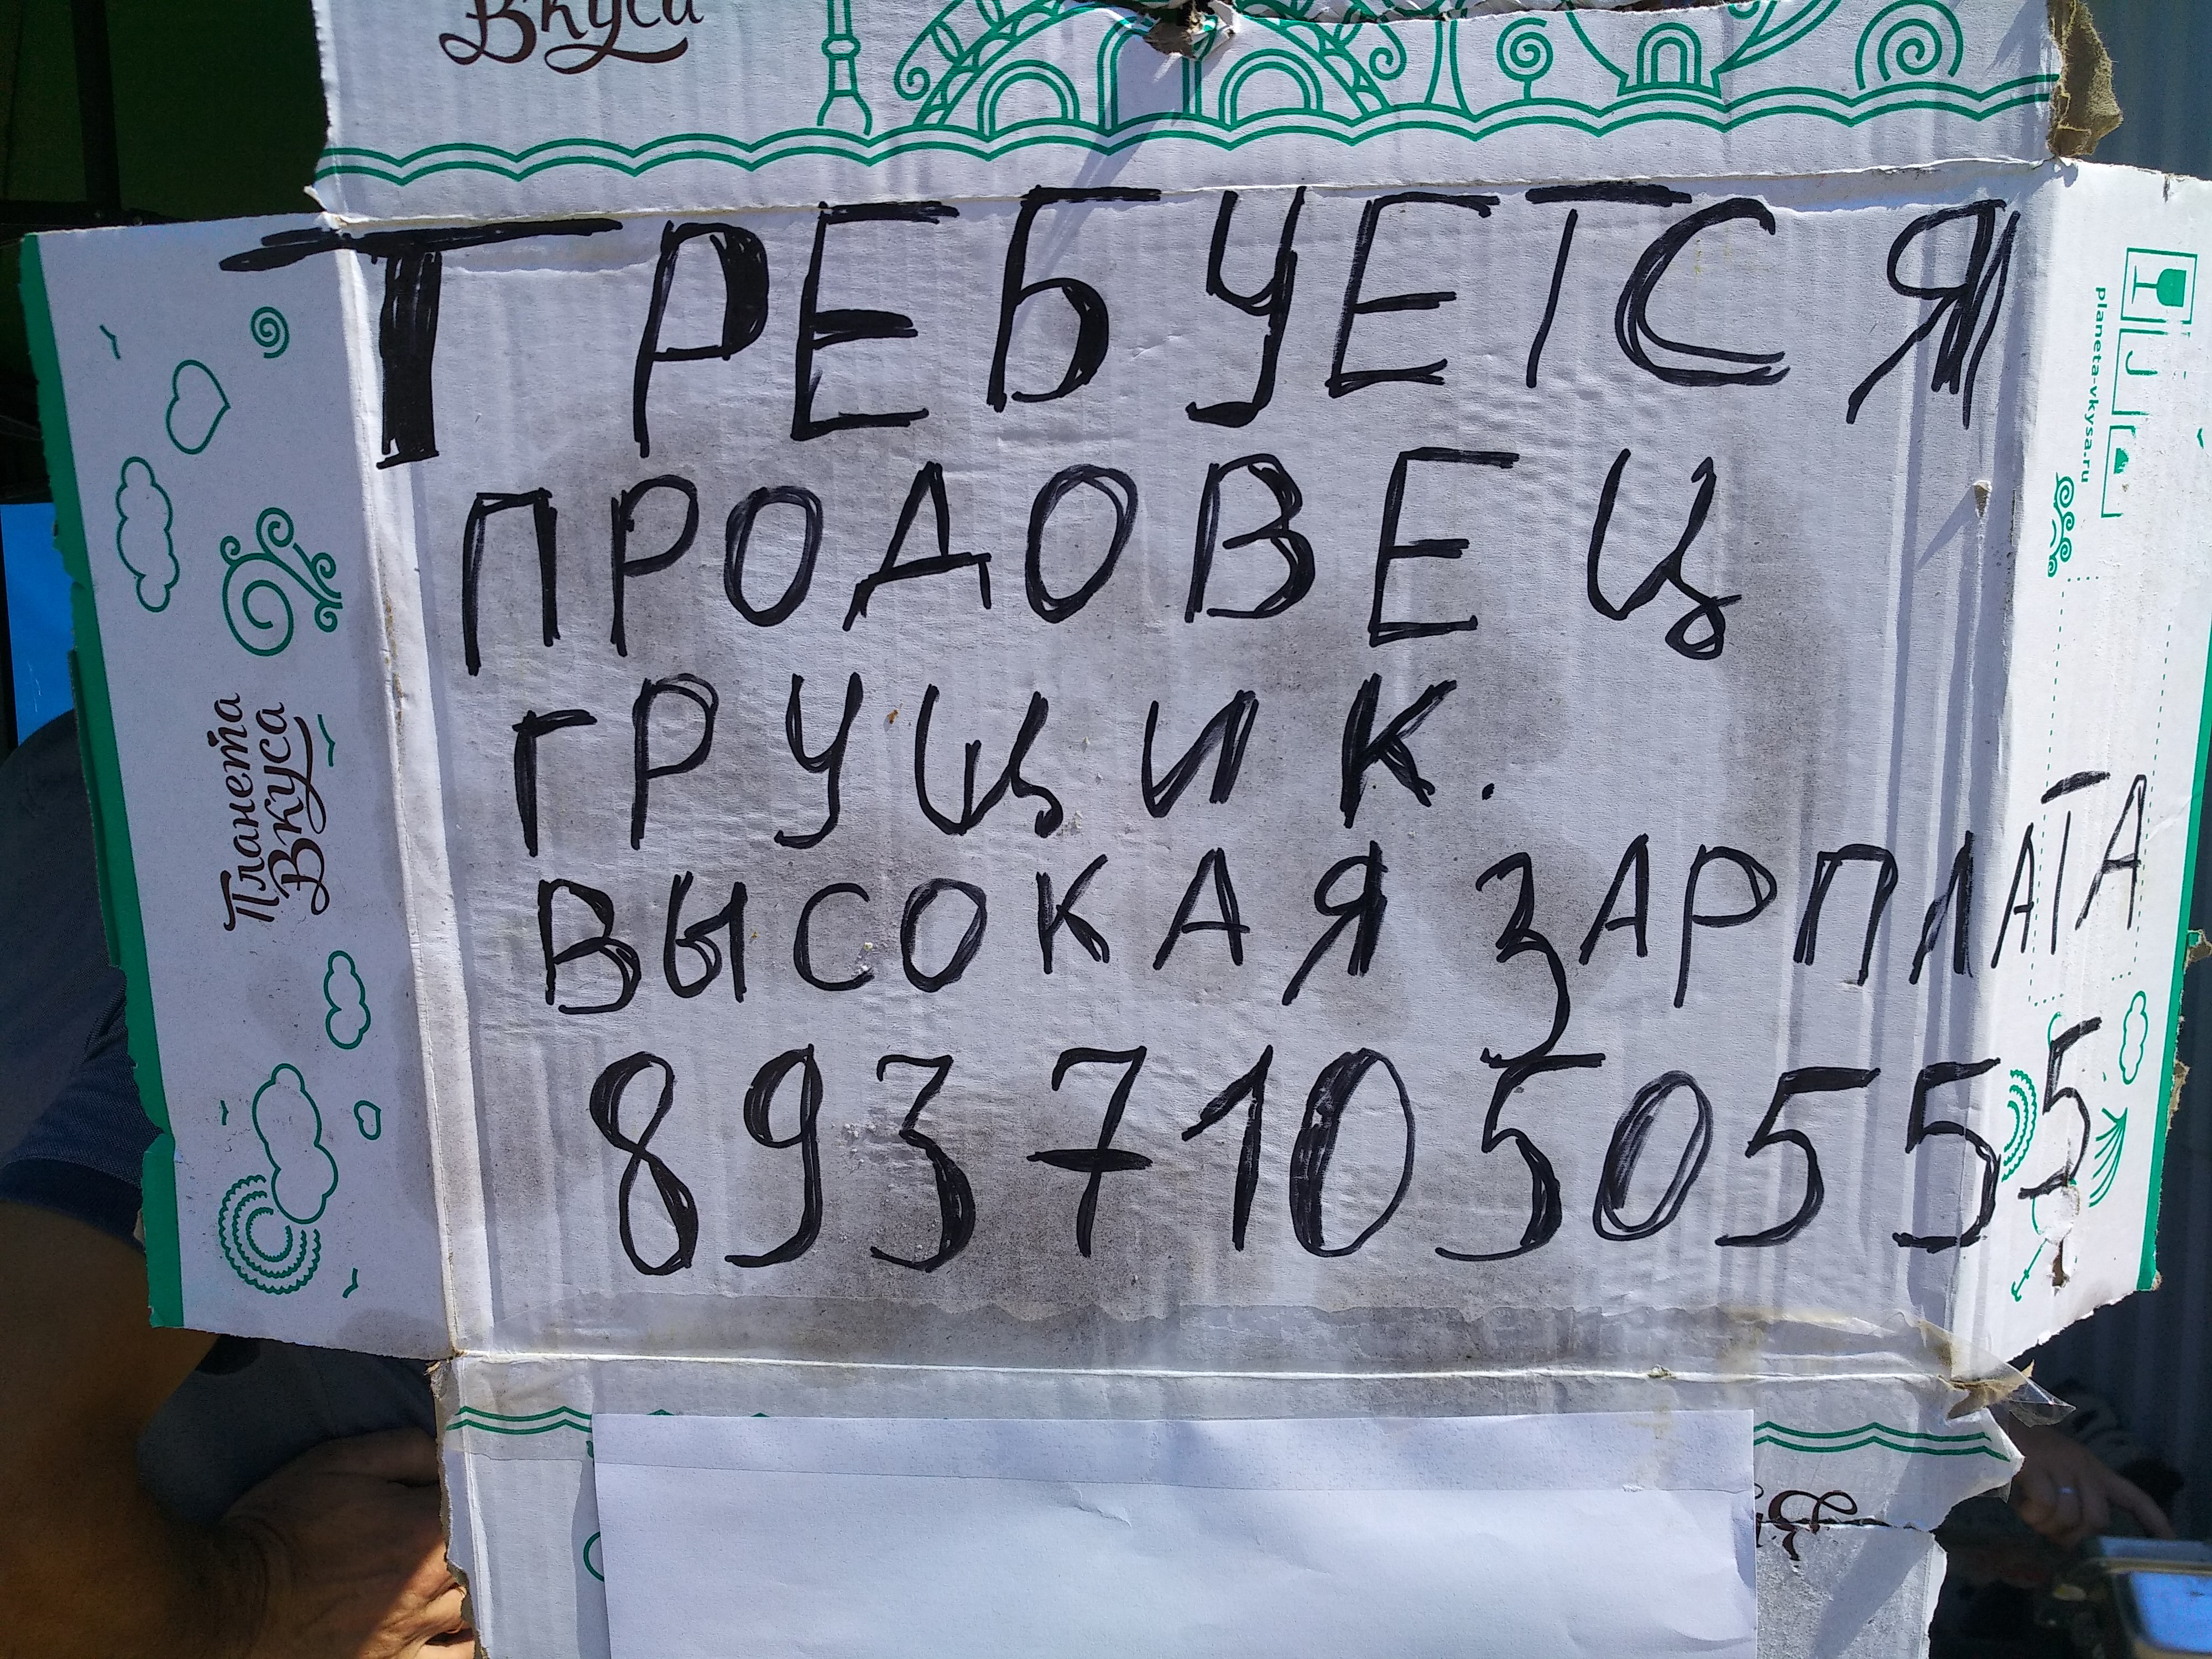 Вкуса
ТРЕБУЕТСЯ
ПРОДОВЕЦ
ГРУЩИК.
ВЫСОКАЯ ЗАРПЛАТА
89371050555
Планета
Вкуса
planeta-vkysa.ru